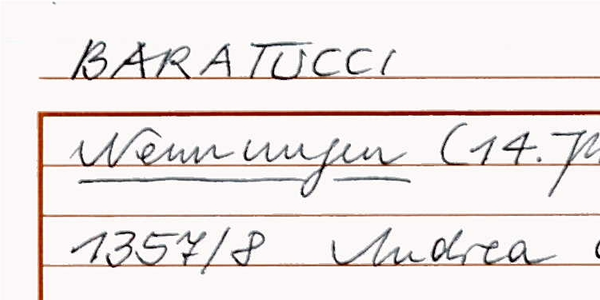 BARATUCCI
Nennungen (14. Jh
1357/8 Andrea